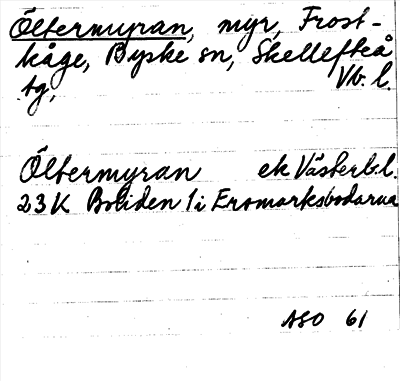 Öltermyran, myr, Frost-
kåge, Byske sn, Skellefteå
tg, Vb. l.
Öltermyran ek Västerb.l.
23K Boliden 1i Eromarksbodarna
ASO 61